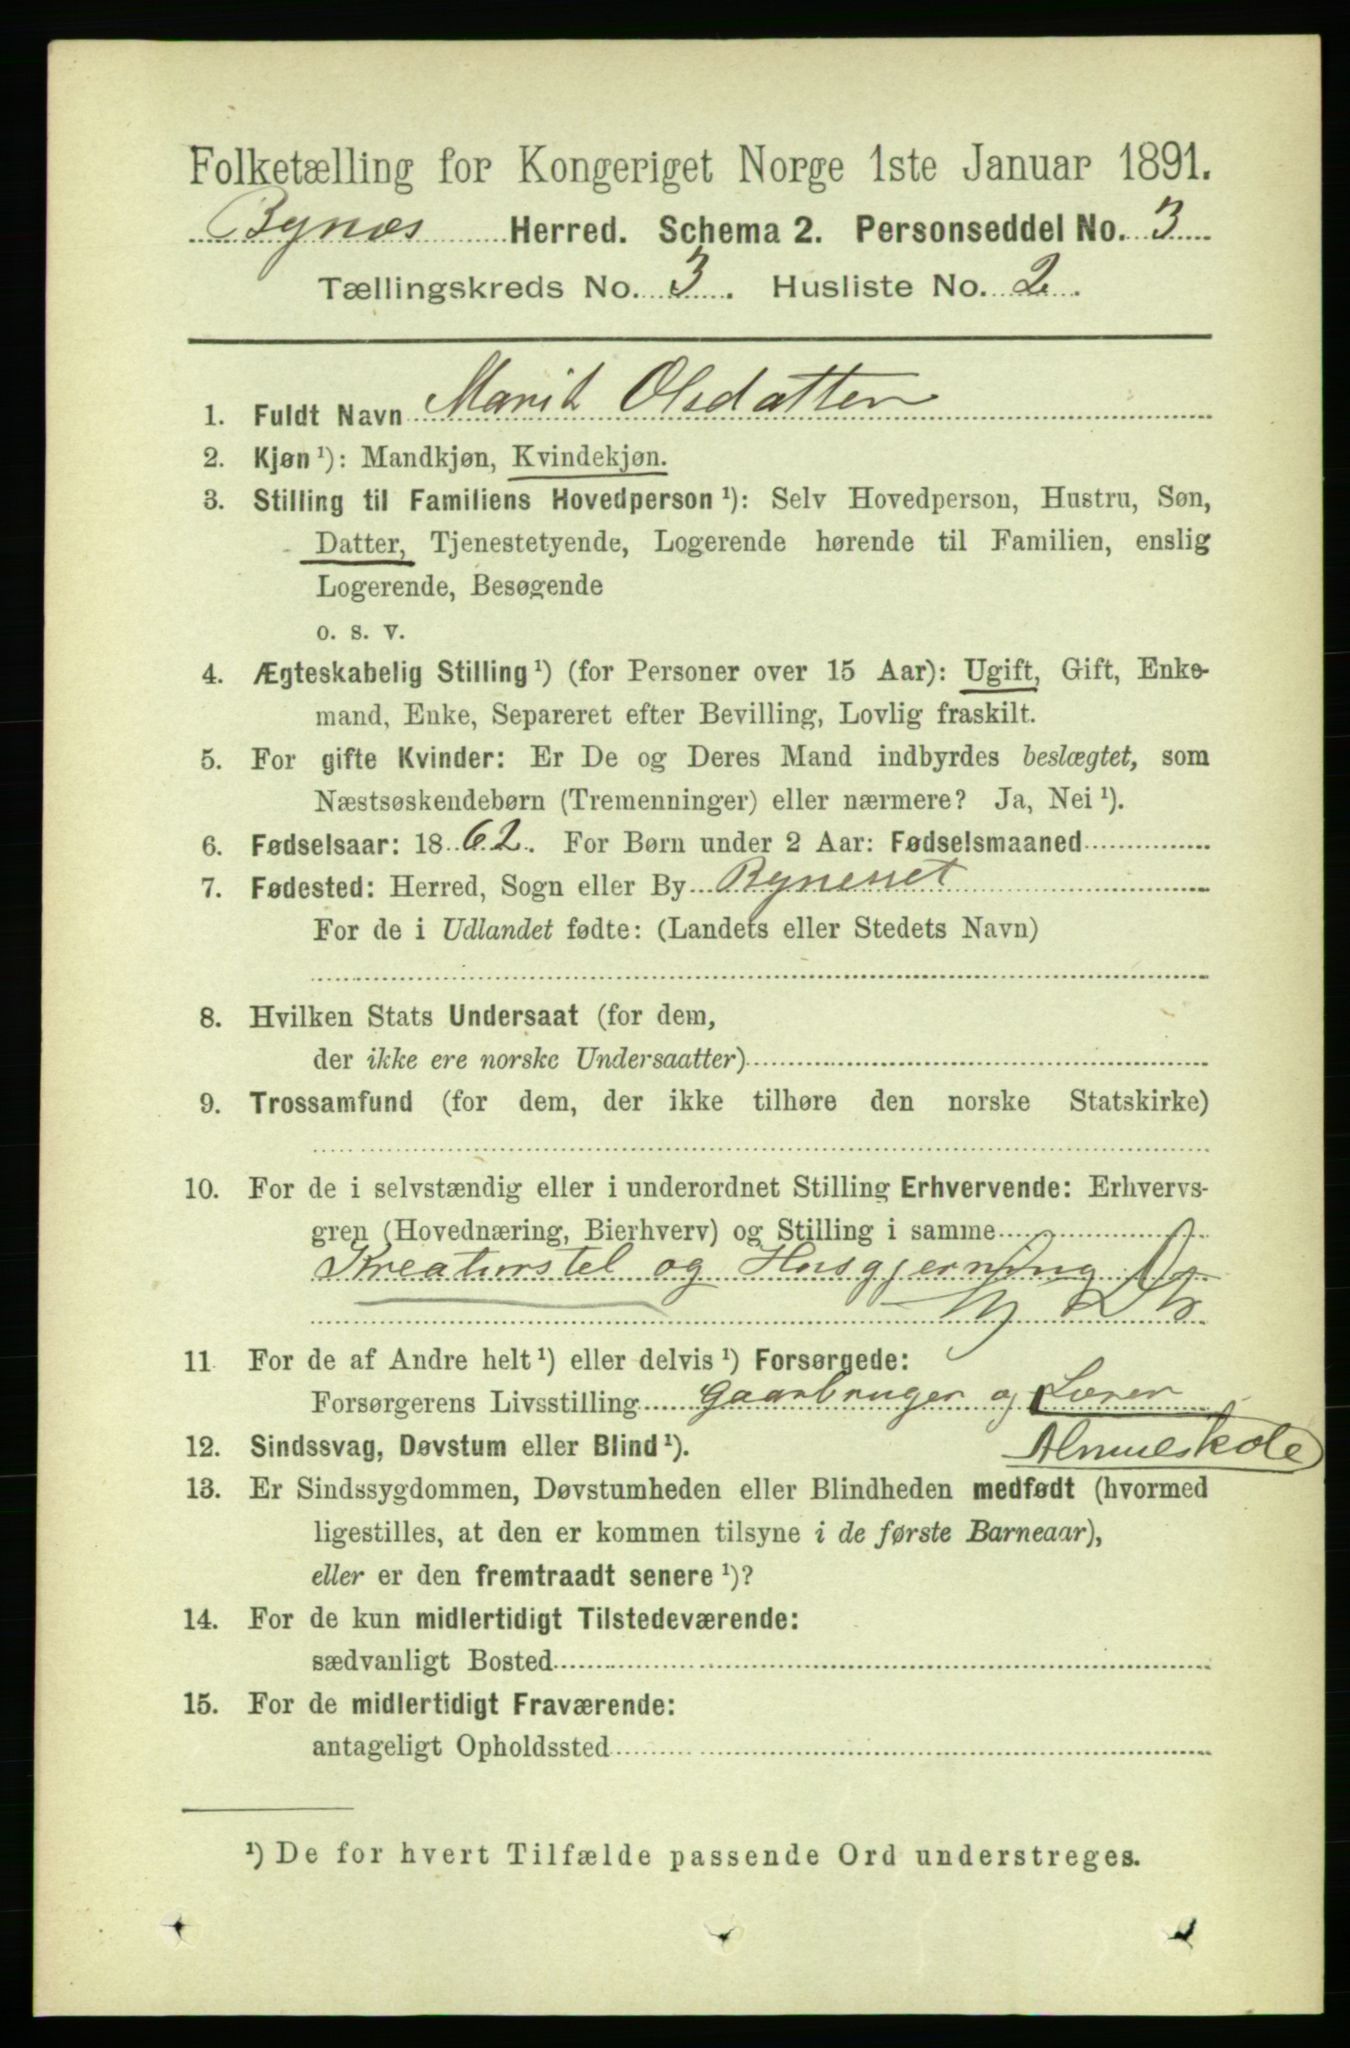 Folketælling for Kongeriget Norge 1ste Januar 1891.
Bynes Herred. Schema 2. Personseddel No. 3
Tællingskreds No. 3. Husliste No. 2.
1. Fuldt Navn Marit Olsdatter
2. Kjøn ¹): Mandkjøn, Kvindekjøn.
3. Stilling til Familiens Hovedperson ¹): Selv Hovedperson, Hustru, Søn,
Datter, Tjenestetyende, Logerende hørende til Familien, enslig
Logerende, Besøgende
o. s. v.
4. Ægteskabelig Stilling ¹) (for Personer over 15 Aar): Ugift, Gift, Enke-
mand, Enke, Separeret efter Bevilling, Lovlig fraskilt.
5. For gifte Kvinder: Er De og Deres Mand indbyrdes beslægtet, som
Næstsøskendebørn (Tremenninger) eller nærmere? Ja, Nei ¹).
6. Fødselsaar: 1862. For Børn under 2 Aar: Fødselsmaaned
7. Fødested: Herred, Sogn eller By Bynesset
For de i Udlandet fødte: (Landets eller Stedets Navn)
8. Hvilken Stats Undersaat (for dem,
der ikke ere norske Undersaatter)
9. Trossamfund (for dem, der ikke tilhøre den norske Statskirke)
10. For de i selvstændig eller i underordnet Stilling Erhvervende: Erhvervs-
gren (Hovednæring, Bierhverv) og Stilling i samme
Kreaturstel og Husgjerning
11 For de af Andre helt ¹) eller delvis ¹) Forsørgede:
Forsørgerens Livsstilling Gaarbruger og Lærer
12. Sindssvag, Døvstum eller Blind ¹). Almueskole
13. Er Sindssygdommen, Døvstumheden eller Blindheden medfødt (hvormed
ligestilles, at den er kommen tilsyne i de første Barneaar),
eller er den fremtraadt senere ¹)?
14. For de kun midlertidigt Tilstedeværende:
sædvanligt Bosted
15. For de midlertidigt Fraværende:
antageligt Opholdssted
¹) De for hvert Tilfælde passende Ord understreges.